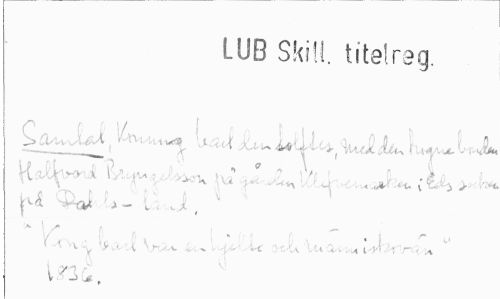 LUB Skill. titelreg.
Samtal, Konung Carl den tolftes, med den trogne bonden
Halfvord Bryngelsson på gården Klefvemarken i Eds socken
på Dahls-land.
"Kong Carl var en hjelte och människovän"
1836.